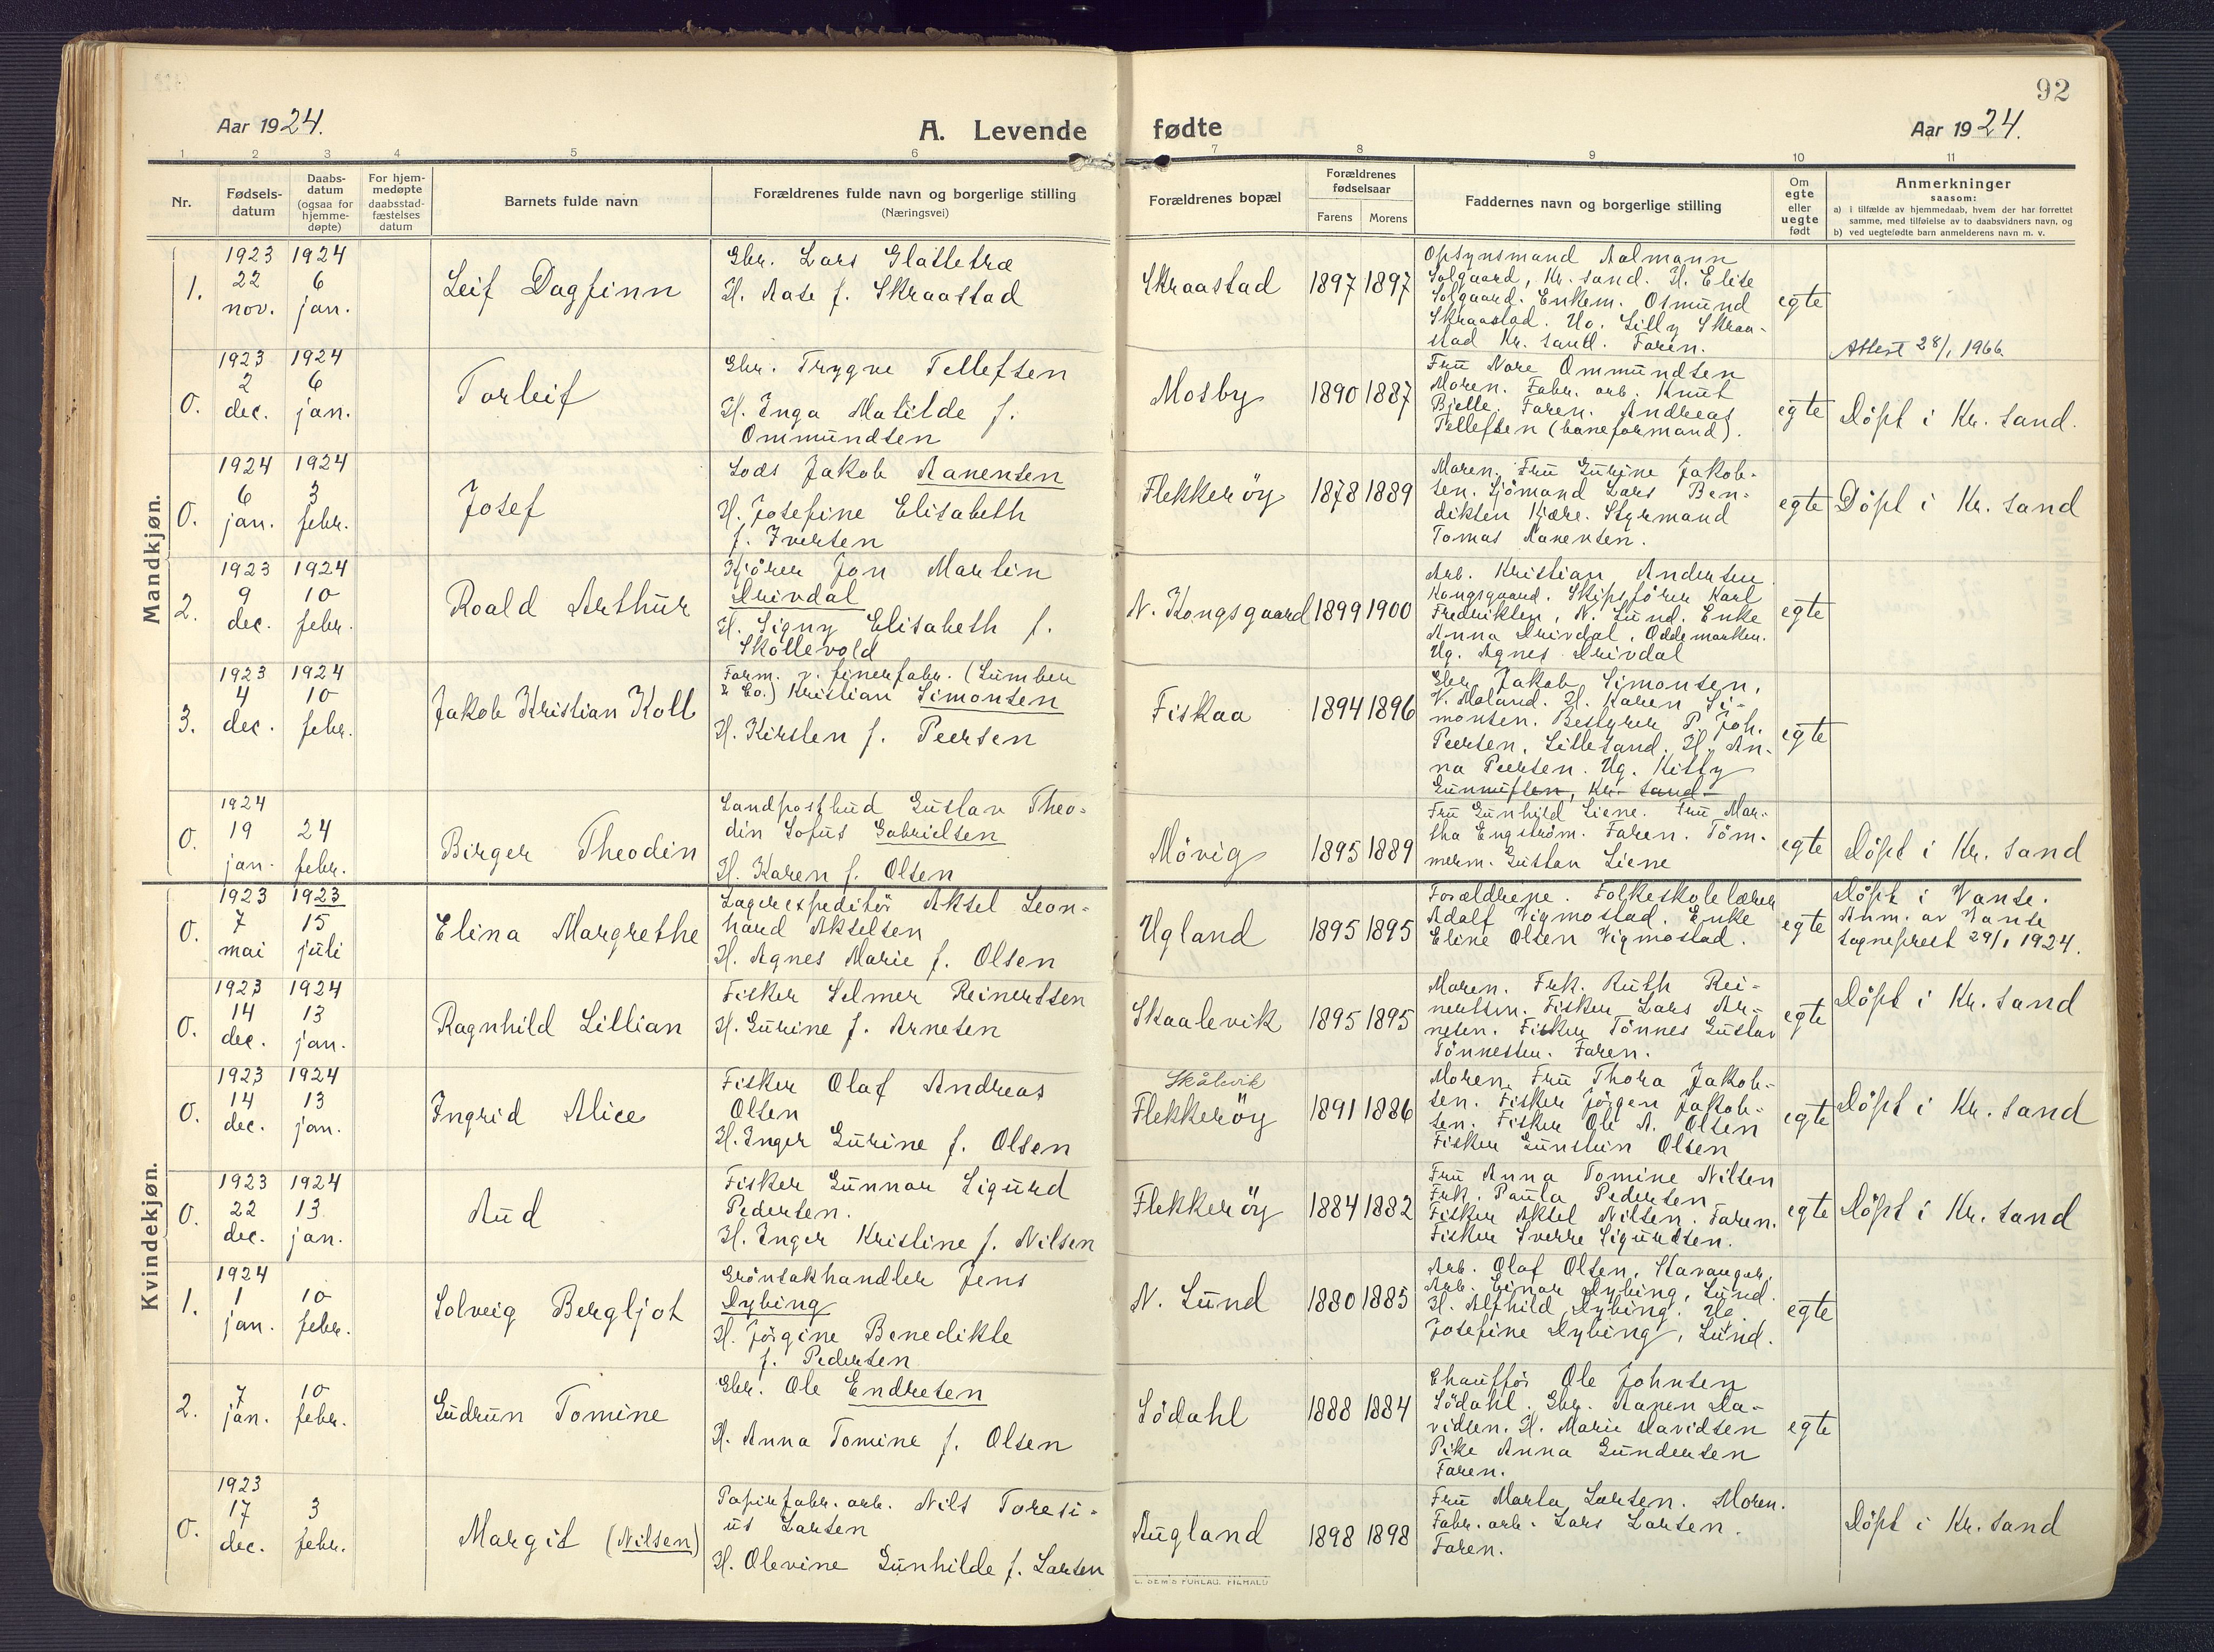 92
Aar 1924.
A. Levende fødte
Aar 1924.
1 2 3 4 5 6 7 8 9 10 11
Nr.
Fødsels-
datum
Daabs-
datum
(ogsaa for
hjemme-
døpte)
For hjem-
medøpte
daabsstad-
fæstelses
datum
Barnets fulde navn
Forældrenes fulde navn og borgerlige stilling
(Næringsvei)
Forældrenes bopæl
Forældrenes
fødselsaar
Farens Morens
Faddernes navn og borgerlige stilling
Om
egte
eller
uegte
født
Anmerkninger
saasom:
a) i tilfælde av hjemmedaab, hvem der har forrettet
samme, med tilføielse av to daabsvidners navn, og
b) ved uegtefødte barn anmelderens navn m. v.
Mandkjøn.
1.
1923
22
nov.
1924
6
jan.
Leif Dagfinn
Gbr. Lars Glattetræ
H. Aase f. Skraastad
Skraastad
1897 1897
Opsynsmand Aalmann
Solgaard, Kr. sand. H. Elise
Solgaard. Enkem. Osmund
Skraastad. Uo. Lilly Skraa-
stad Kr. sand. Faren.
egte
Attest 28/1 1966.
0.
1923
2
dec.
1924
6
jan.
Torleif
Gbr. Trygve Tellefsen
H. Inga Matilde f.
Ommundsen
Mosby
1890 1887
Fru Nare Ommundsen
Moren. Fabr. arb. Knut
Bjelle. Faren. Andreas
Tellefsen (baneformand).
egte
Döpt i Kr. sand.
0.
1924
6
jan.
1924
3
febr.
Josef
Lods Jakob Aanensen
H. Josefine Elisabeth
f. Iversen
Flekkeröy
1878 1889
Moren. Fru Gurine Jakob-
sen. Sjömand Lars Ben-
diksen Kjære. Styrmand
Tomas Aanensen.
egte
Döpt i Kr. sand
2.
1923
9
dec.
1924
10
febr.
Roald Arthur
Kjörer Jon Martin
Drivdal
H. Signy Elisabeth f.
Skollevold
N. Kongsgaard
1899 1900
Arb. Kristian Andersen
Kongsgaard. Skipsförer Karl
Fredriksen, N. Lund. Enke
Anna Drivdal, Oddemarken.
Ug. Agnes Drivdal
egte
3.
1923
4
dec.
1924
10
febr.
Jakob Kristian Koll
Form. v. finerfabr. (Lumber
& Co.) Kristian Simonsen
H. Kirsten f. Peersen
Fiskaa
1894 1896
Gbr. Jakob Simonsen,
V. Moland. H. Karen Si-
monsen. Bestyrer P. Joh.
Peersen, Lillesand. H. An-
na Peersen. Ug. Kitty
Gunnufsen, Kr. sand
egte
0.
1924
19
jan.
24
febr.
Birger Theodin
Landpostbud Gustav Theo-
din Lofus Gabrielsen
H. Karen f. Olsen
Mövig
1895 1889
Fru Gunhild Liene. Fru Mar-
tha Engström. Faren. Töm-
merm. Gustav Liene
egte
Döpt i Kr. sand
Kvindekjøn.
0.
1923
7
mai
1923
15
juli
Elina Margrethe
Lagerexpeditör Aksel Leon-
hard Akselsen
H. Agnes Marie f. Olsen
Ugland
1895 1895
Forældrene. Folkeskolelærer
Adolf Vigmostad. Enke
Eline Olsen Vigmostad.
egte
Döpt i Vanse.
Anm. av Vanse
sogneprest 29/1 1924.
0.
1923
14
dec.
1924
13
jan.
Ragnhild Lillian
Fisker Selmer Reinertsen
H. Gurine f. Arnesen
Skaalevik
1895 1895
Moren. Frk. Ruth Rei-
nertsen. Fisker Lars Ar-
nesen. Fisker Tönnes Gustav
Tönnesen. Faren.
egte
Döpt i Kr. sand
0.
1923
14
dec.
1924
13
jan.
Ingrid Alice
Fisker Olaf Andreas
Olsen
H. Inger Gurine f. Olsen
Skålvik
Flekkeröy
1891 1886
Moren. Fru Thora Jakob-
sen. Fisker Jörgen Jakob-
sen. Fisker Ole A. Olsen
Fisker Gunstein Olsen
egte
Döpt i Kr. sand
0.
1923
22
dec.
1924
13
jan.
Aud
Fisker Gunnar Sigurd
Pedersen.
H. Inger Kristine f. Nilsen
Flekkeröy
1884 1882
Fru Anna Tomine Nilsen
Frk. Paula Pedersen
Fisker Aksel Nilsen. Faren.
Fisker Sverre Sigurdsen.
egte
Döpt i Kr. sand
1.
1924
1
jan.
10
febr.
Solveig Bergljot
Grönsakhandler Jens
Dybing
H. Jörgine Benedikte
f. Pedersen
N. Lund
1880 1885
Arb. Olaf Olsen, Stavanger.
Arb. Einar Dybing, Lund.
H. Alfhild Dybing. Ug.
Josefine Dybing, Lund.
egte
2.
7
jan.
10
febr.
Gudrun Tomine
Gbr. Ole Endresen
H. Anna Tomine f. Olsen
Södahl
1888 1884
Chaufför Ole Johnsen
Södahl. Gbr. Aanen Da-
vidsen. H. Marie Davidsen
Pike Anna Gundersen
Faren.
egte
0.
1923
17
dec.
3
febr.
Margit (Nilsen)
Papirfabr. arb. Nils Toresi-
us Larsen
H. Olevine Gunhilde f. Larsen
Augland
1898 1898
Fru Marta Larsen. Moren.
Fabr. arb. Lars Larsen.
Faren.
Döpt i Kr. sand
E. SEM'S FORLAG, FR.HALD